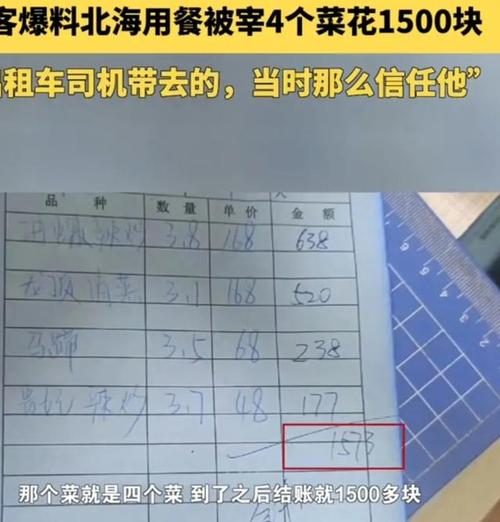 客爆料北海用餐被宰4个菜花1500块
出租车司机带去的，当时那么信任他”
品 种 数 量 单 价 金 额
辣炒 3.8 168 638
3.1 168 520
马蹄 3.5 68 238
辣炒 3.7 48 177
1573
那个菜就是四个菜 到了之后结账就1500多块